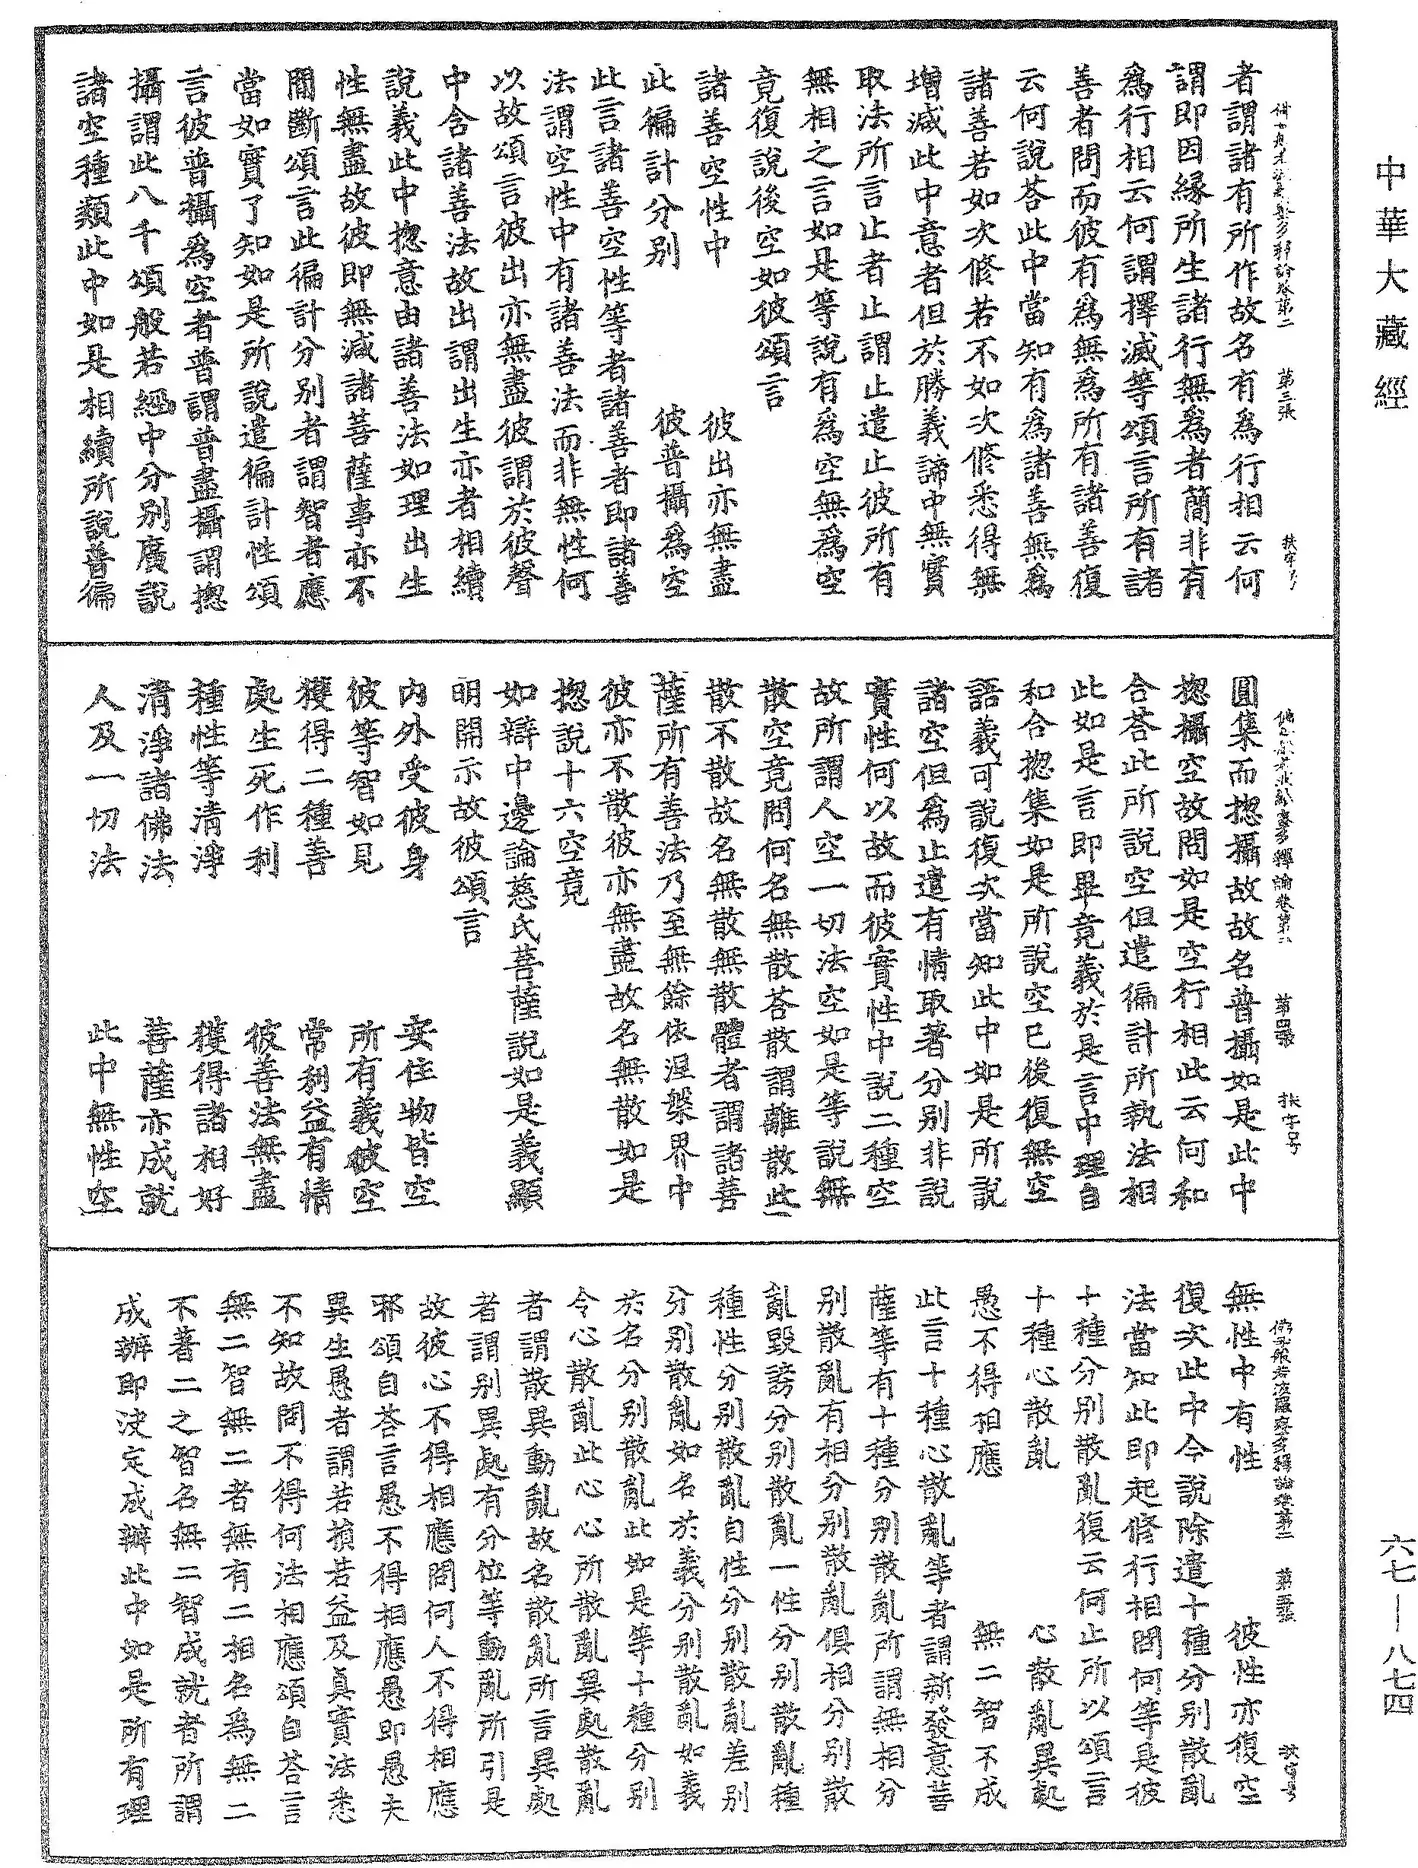 中華大藏經
者謂諸有所作故名有為行相云何
謂即因緣所生諸行無為者簡非有
為行相云何謂擇滅等頌言所有諸
善者問而彼有為無為所有諸善復
云何說荅此中當知有為諸善無為
諸善若如次修若不如次修悉得無
增減此中意者但於勝義諦中無實
取法所言止者止謂止遣止彼所有
無相之言如是等說有為空無為空
竟復說後空如彼頌言
諸善空性中　彼出亦無盡
此徧計分别　彼普攝為空
此言諸善空性等者諸善者即諸善
法謂空性中有諸善法而非無性何
以故頌言彼出亦無盡彼謂於彼聲
中含諸善法故出謂出生亦者相續
說義此中揔意由諸善法如理出生
性無盡故彼即無減諸菩薩事亦不
間斷頌言此徧計分别者謂智者應
當如實了知如是所說遣徧計性頌
言彼普攝為空者普謂普盡攝謂揔
攝謂此八千頌般若經中分别廣說
諸空種類此中如是相續所說普徧
圓集而揔攝故故名普攝如是此中
揔攝空故問如是空行相此云何和
合荅此所說空但遣徧計所執法相
此如是言即畢竟義於是言中理自
和合揔集如是所說空已後復無空
語義可說復次當知此中如是所說
諸空但為止遣有情取著分别非說
實性何以故而彼實性中說二種空
故所謂人空一切法空如是等說無
散空竟問何名無散荅散謂離散此
散不散故名無散無散體者謂諸菩
薩所有善法乃至無餘依涅槃界中
彼亦不散彼亦無盡故名無散如是
揔說十六空竟
如辯中邊論慈氏菩薩說如是義顯
明開示故彼頌言
內外受彼身　安住物皆空
彼等智如見　所有義彼空
獲得二種善　常利益有情
處生死作利　彼善法無盡
種性等清淨　獲得諸相好
清淨諸佛法　菩薩亦成就
人及一切法　此中無性空
無性中有性　彼性亦復空
復次此中今說除遣十種分别散亂
法當知此即起修行相問何等是彼
十種分别散亂復云何止所以頌言
十種心散亂　心散亂異起
愚不得相應　無二智不成
此言十種心散亂等者謂新發意菩
薩等有十種分别散亂所謂無相分
别散亂有相分别散亂俱相分别散
亂毀謗分别散亂一性分别散亂種
種性分别散亂自性分别散亂差别
分别散亂如名於義分别散亂如義
於名分别散亂此如是等十種分别
令心散亂此心心所散亂異處散亂
者謂散異動亂故名散亂所言異處
者謂别異處有分位等動亂所引是
故彼心不得相應問何人不得相應
邪頌自荅言愚不得相應愚即愚夫
異生愚者謂若損若益及真實法悉
不知故問不得何法相應頌自荅言
無二智無二者無有二相名為無二
不著二之智名無二智成就者所謂
成辦即決定成辦此中如是所有理
六七—八七四